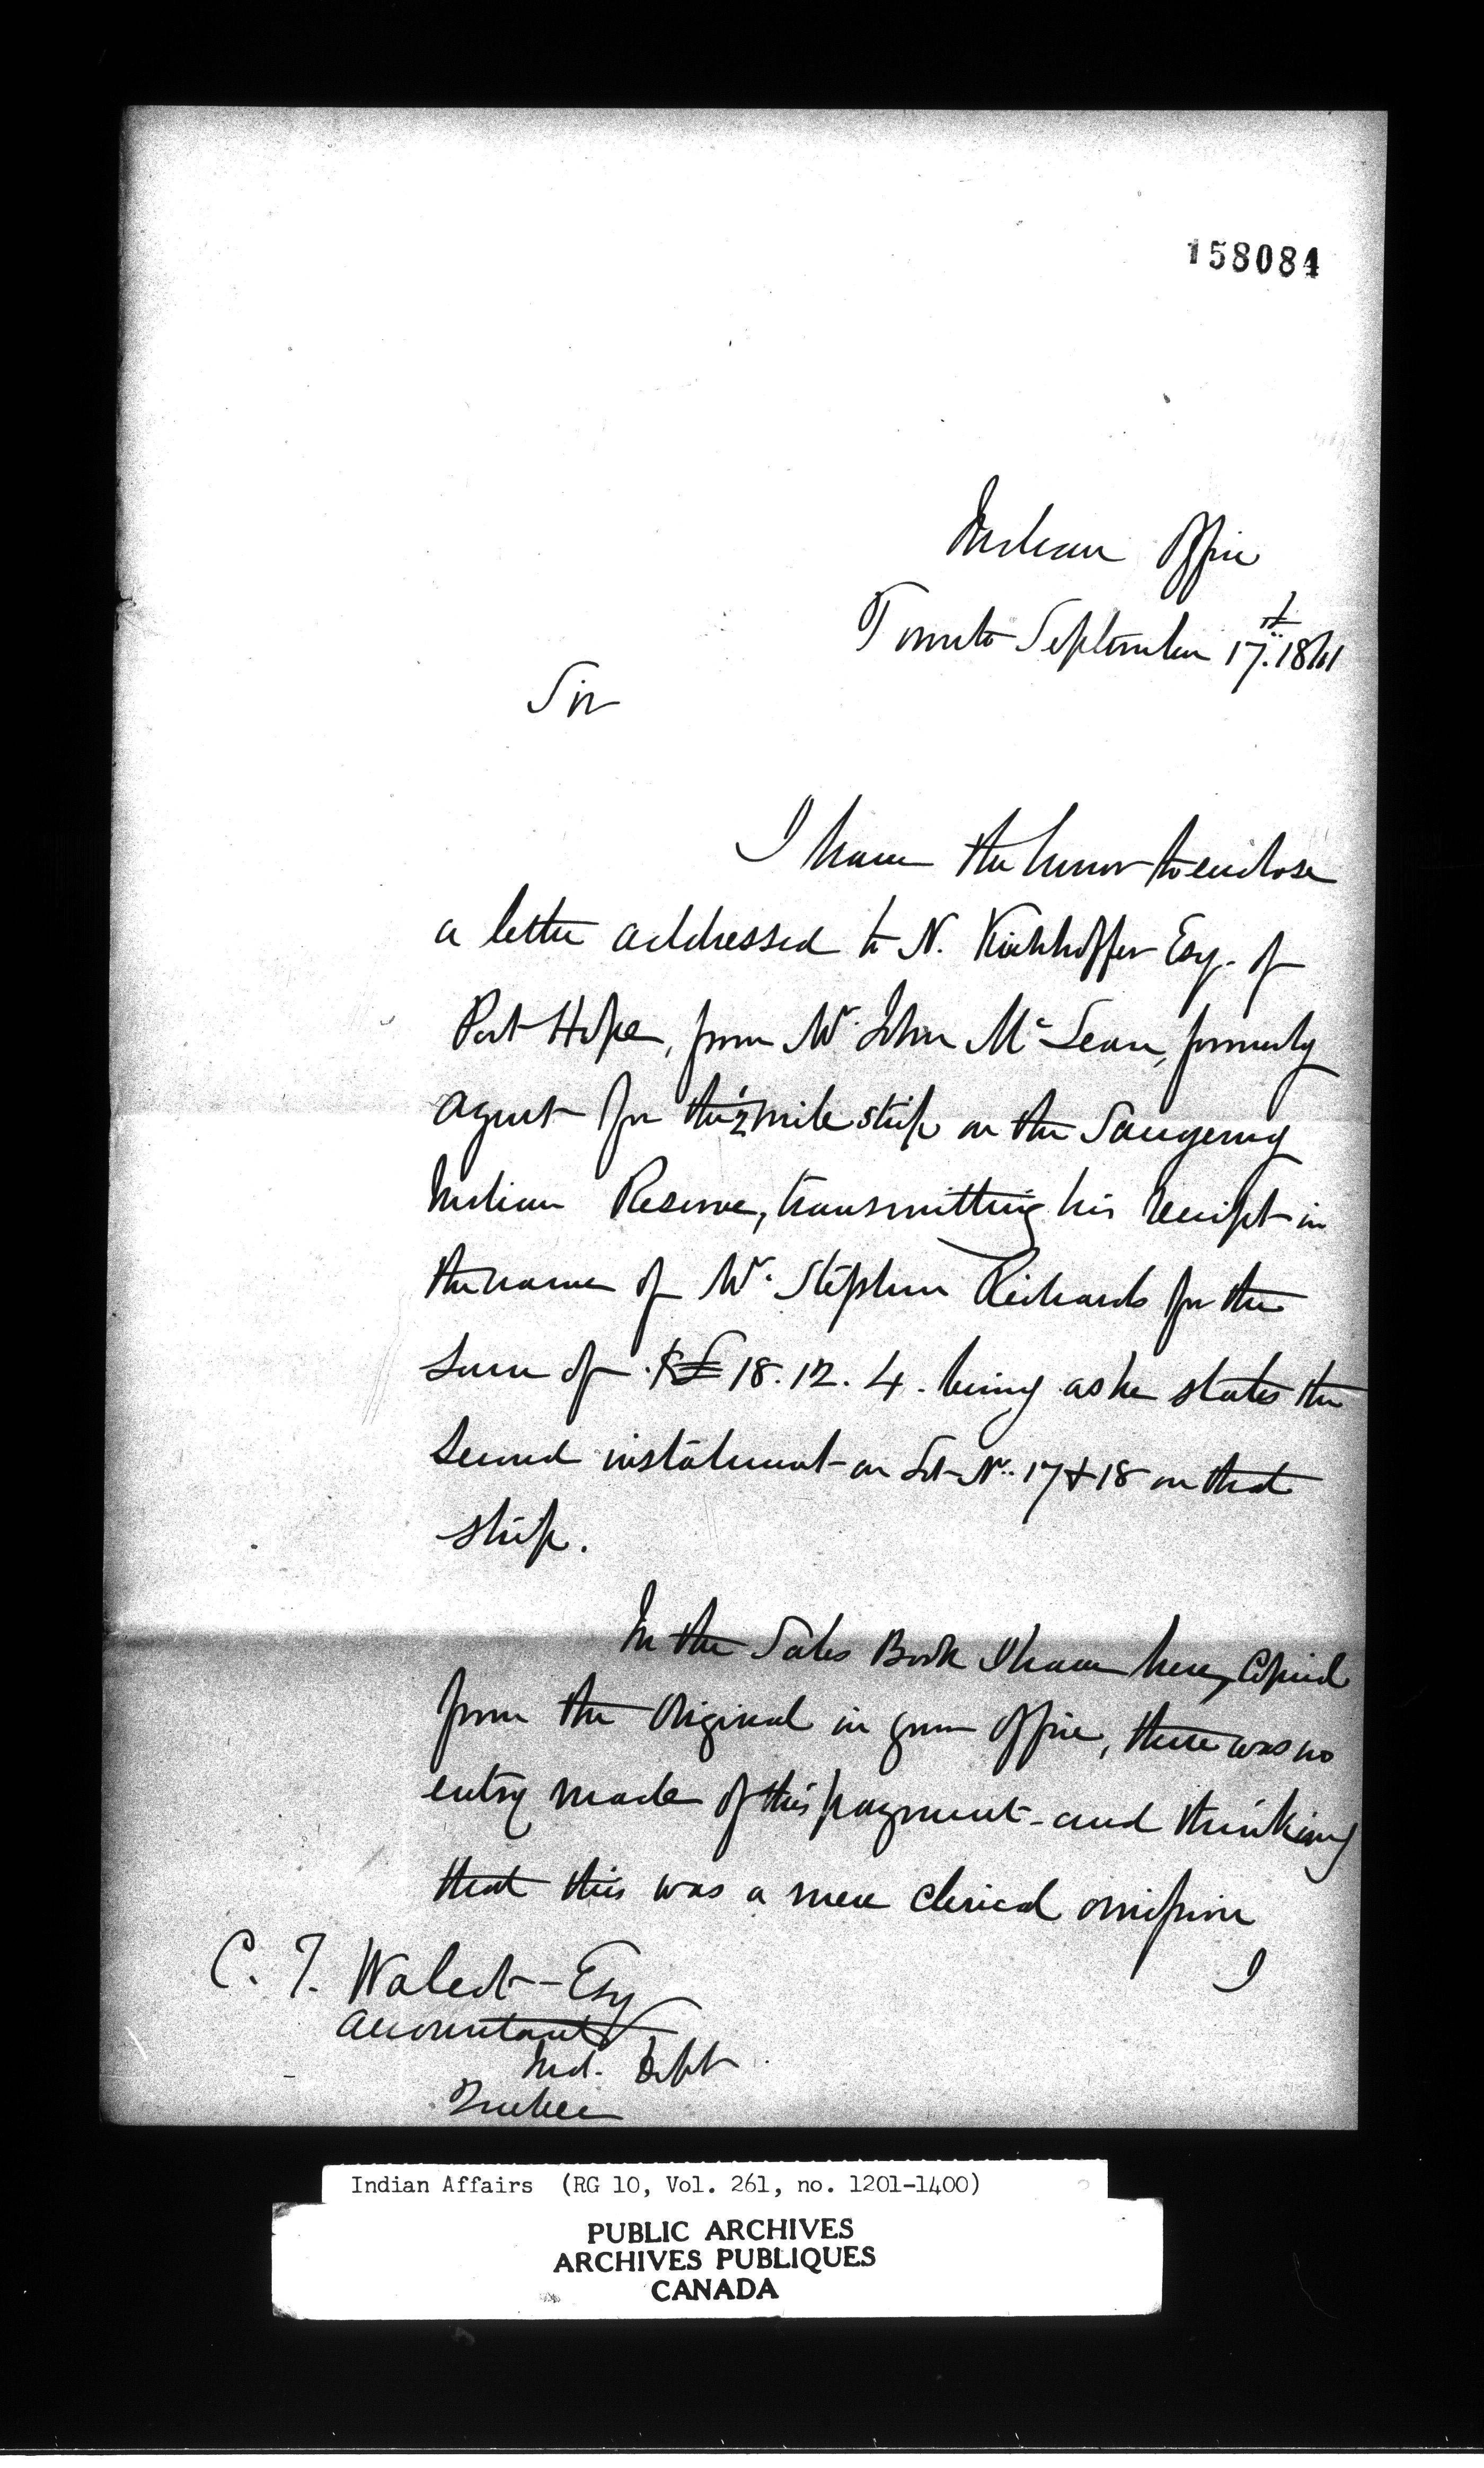 158084
Indian Office
Toronto September 17th 1861
Sir
I have the honor to enclose
a letter addressed to N. Kirchhoffer Esq. of
Port Hope, from Mr John McLean, formerly
agent for the ½ mile strip on the Saugeeng
Indian Reserve, transmitting his receipt in
the name of Mr Stephen Richards for the
sum of £18.12.4. being as he states the
second instalment on Lot No. 17 & 18 on that
strip.
In the Sales Book I have here, Copied
from the Original in your office, there was no
entry made of this payment and thinking
that this was a mere clerical omission
I
C. T. Walcot Esq
Accountant
Ind. Dept
Quebec
Indian Affairs (RG 10, Vol. 261, no. 1201-1400)
PUBLIC ARCHIVES
ARCHIVES PUBLIQUES
CANADA